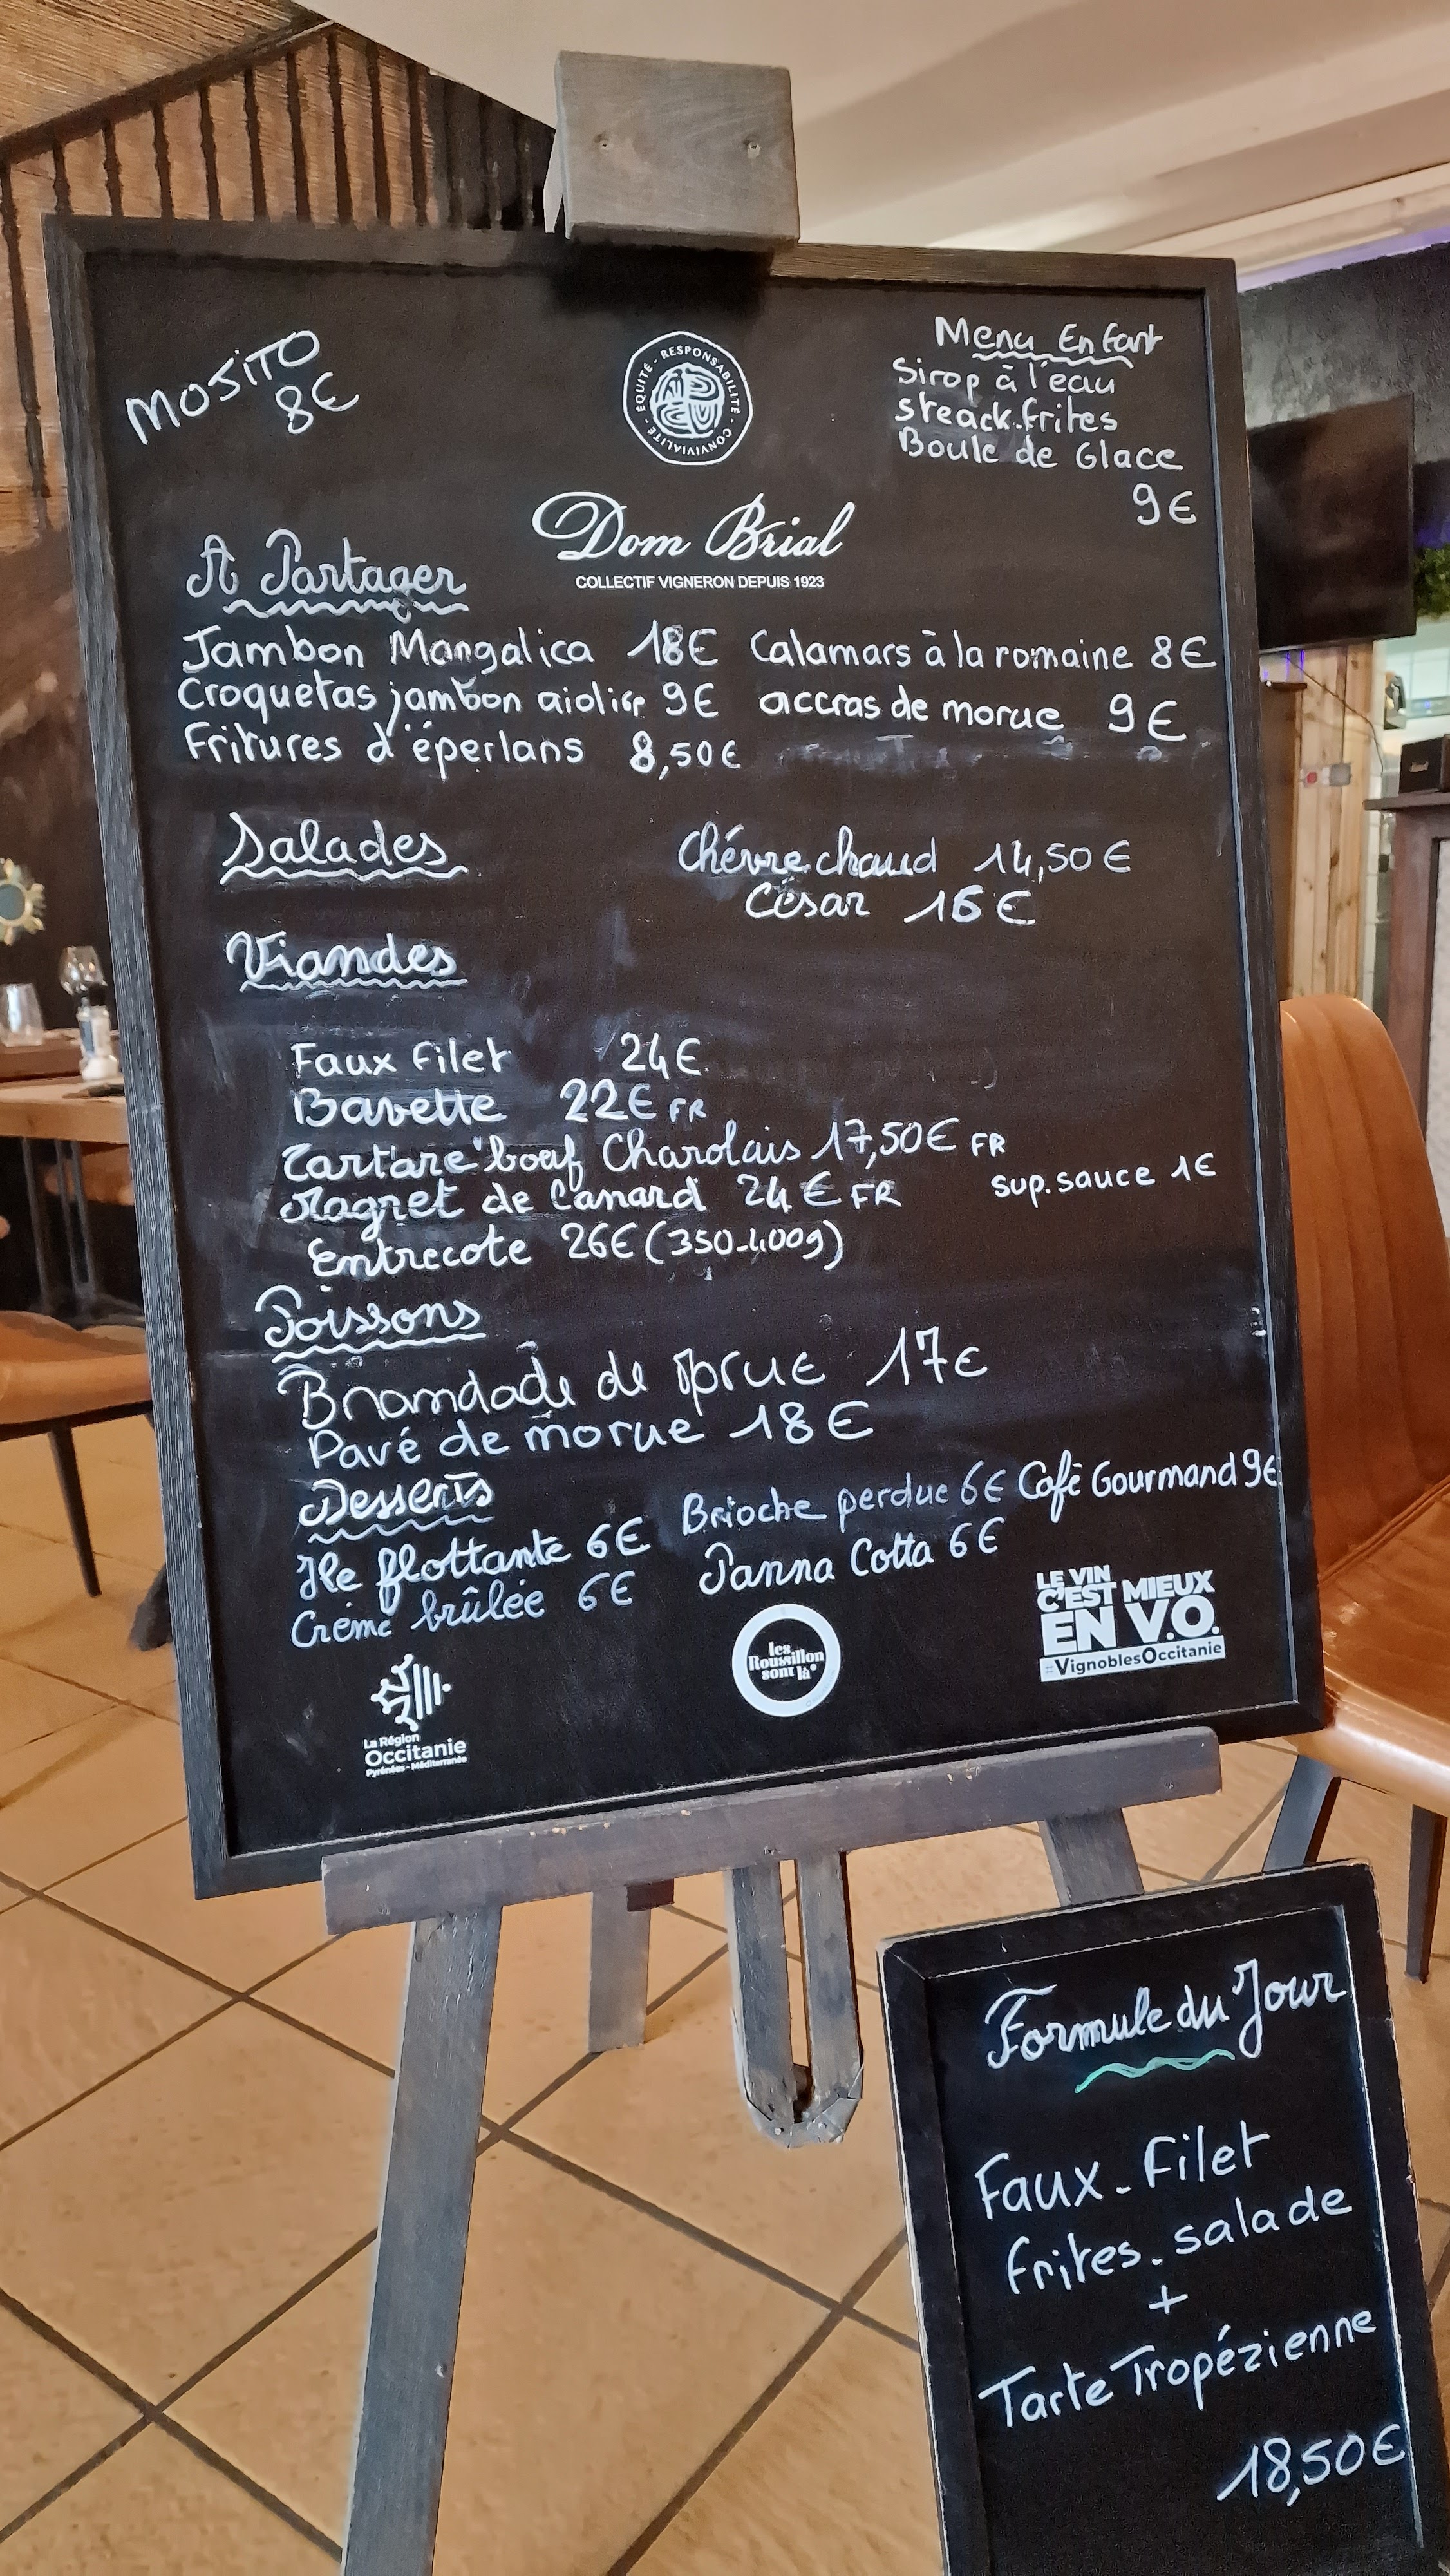 MOJITO
8€
ÉQUITÉ - RESPONSABILITÉ - CONVIVIALITÉ -
Dom Brial
COLLECTIF VIGNERON DEPUIS 1923
Menu Enfant
Sirop à l'eau
steack-frites
Boule de Glace
9€
A Partager
Jambon Mangalica 18€ Calamars à la romaine 8€
Croquetas jambon 9€ accras de morue 9€
Fritures d'éperlans 8,50€
Salades Chévre chaud 14,50€
César 16€
Viandes
Faux filet 24€
Bavette 22€ FR
Tartare boeuf Charolais 17,50€ FR
Magret de Canard 24€ FR sup. sauce 1€
Entrecote 26€ (350-400g)
Poissons
Brandade de morue 17€
Pavé de morue 18€
Desserts Brioche perdue 6€ Café Gourmand 9€
Ile flottante 6€ Panna Cotta 6€
Crème brûlée 6€
La Région
Occitanie
Pyrénées - Méditerranée
les
Roussillon
sont là
LE VIN
C'EST MIEUX
EN V.O.
#VignoblesOccitanie
Formule du Jour
Faux-filet
frites-salade
+
Tarte Tropézienne
18,50€